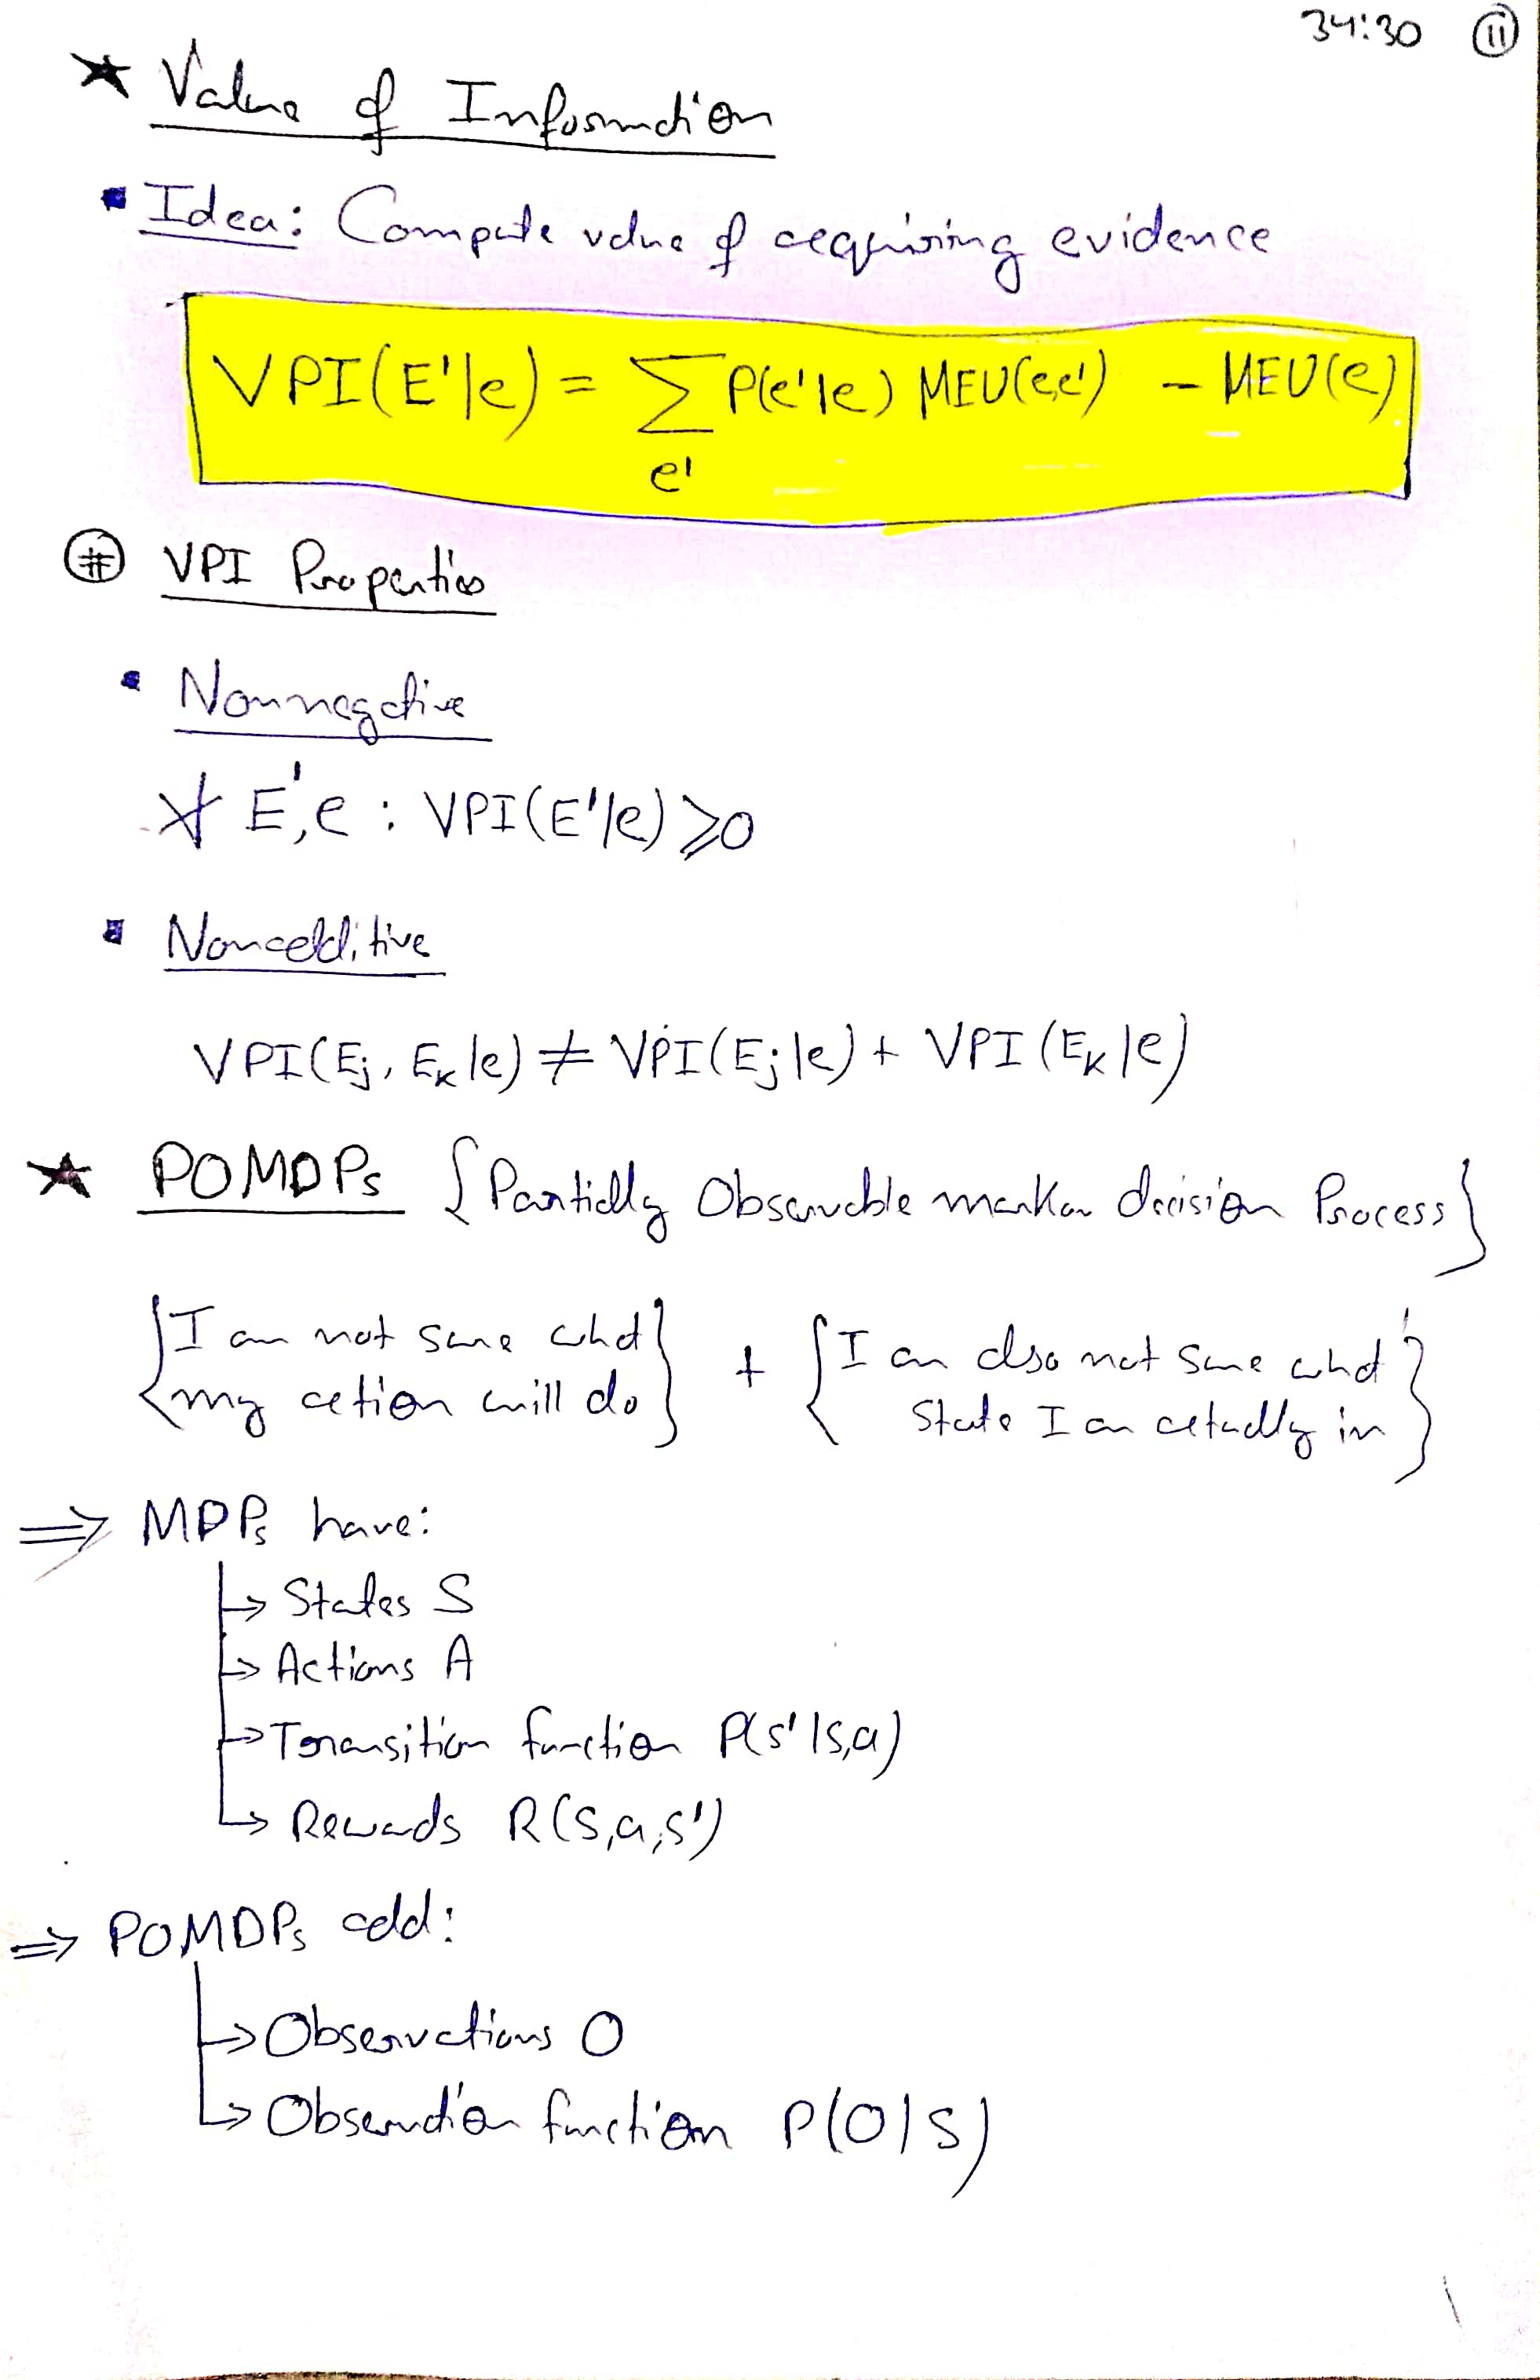 34:30 (11)
★ Value of Information
▪ Idea: Compute value of acquiring evidence
VPI(E'|e) = ∑ P(e'|e) MEU(e,e') - MEU(e)
e'
⊕ VPI Properties
▪ Nonnegative
∀ E',e : VPI(E'|e) ⩾ 0
▪ Nonadditive
VPI(Ej, Ek|e) ≠ VPI(Ej|e) + VPI(Ek|e)
★ POMDPs {Partially Observable markov decision Process}
{I am not sure what my action will do} + {I am also not sure what State I am actually in}
⇒ MDPs have:
↳ States S
↳ Actions A
↳ Transition function P(s'|s,a)
↳ Rewards R(s,a,s')
⇒ POMDPs add:
↳ Observations O
↳ Observation function P(O|S)